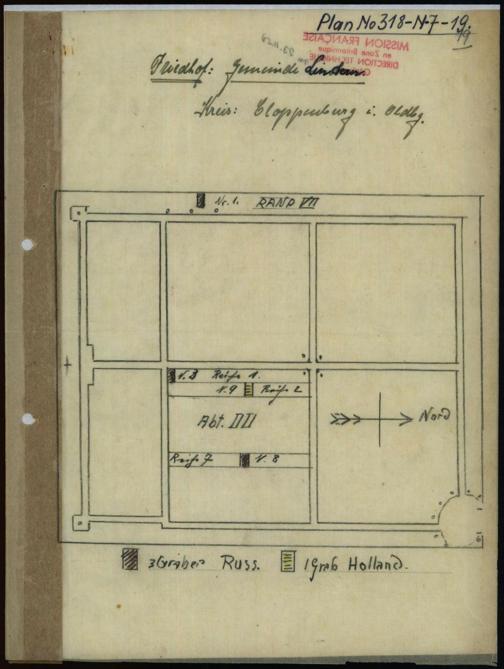 Plan No 318-N-7-19.
19
MISSION FRANÇAISE
en Zone Britannique
DIRECTION
Friedhof: Gemeinde Lindern
Kreis: Cloppenburg i. Oldbg.
Nr. 1. RAND VII
N. 3 Reihe 1.
N. 9 Reihe 2
Abt. III
Nord
Reihe 7 N. 8
3 Gräber Russ. 1 Grab Holland.